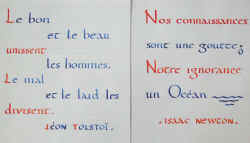 Le bon
et le beau
unissent
les hommes.
Le mal
et le laid les
divisent.
LÉON TOLSTOÏ.
Nos connaissances
sont une goutte;
Notre ignorance
un Océan
. ISAAC NEWTON.